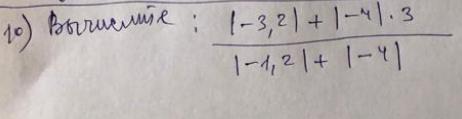 10) Вычислите : |-3,2| + |-4| · 3
|-1,2| + |-4|